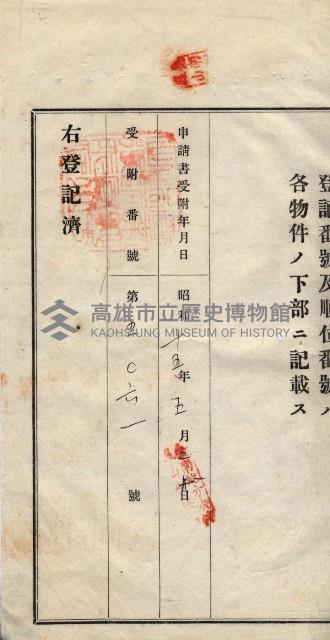 登記番號及順位番號ハ
各物件ノ下部ニ記載ス
申請書受附年月日 昭和十五年五月三十日
受附番號 第五〇六一號
右登記濟
高雄市立歷史博物館
KAOHSIUNG MUSEUM OF HISTORY